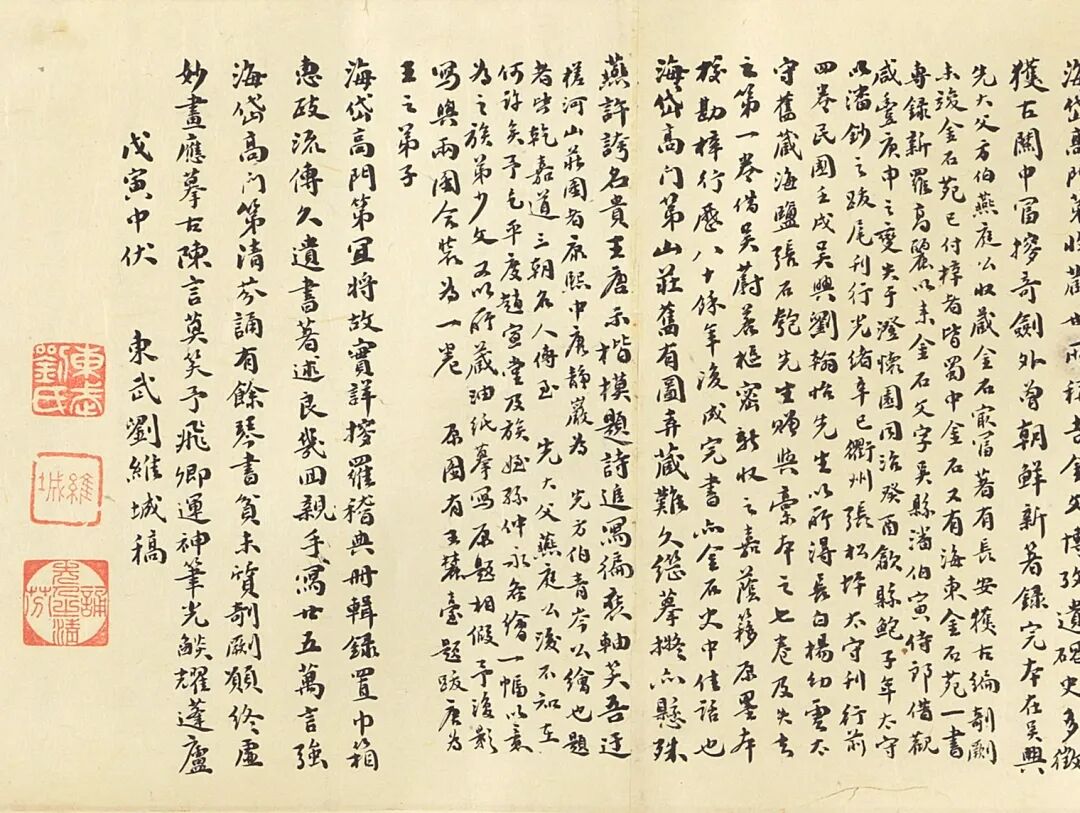 海岱高門第收藏世所稱吉金文博攷遺碑史多徵
獲古關中富搜奇劍外曾朝鮮新著錄完本在吳興
先大父方伯燕庭公收藏金石最富著有長安獲古編剞劂
未竣金石苑已付梓者皆蜀中金石又有海東金石苑一書
專錄新羅高麗以來金石文字吳縣潘伯寅侍郎借觀
咸豐庚申之變失于澄懷園同治癸酉歙縣鮑子年太守
以潘鈔之跋尾刊行光緒辛巳衢州張松坪太守刊行前
四卷民國壬戌吳興劉翰怡先生以所得長白楊幼雲太
守舊藏海鹽張石匏先生贈與藁本之七卷及失去
之第一卷借吳蔚若樞密新收之嘉蔭簃原墨本
校勘梓行歷八十餘年後成完書亦金石史中佳話也
海岱高门第山莊舊有圖弆藏難久繼摹擬亦懸殊
燕許誇名貴王唐示楷模題詩追寫徧裒軸笑吾迂
槎河山莊圖者康熙中唐靜巖為 先方伯青岑公繪也題
者皆乾嘉道三朝名人傳至 先大父燕庭公後不知在
何許矣予乞平度趙宣堂及族姪孫仲永各繪一幅以意
為之族弟少文又以所藏油紙摹寫原題相假予後影
寫與兩圖合裝為一卷 原圖有王麓臺題跋唐為
王之弟子
海岱高門第宜將故實詳搜羅稽典冊輯錄置巾箱
惠政流傳久遺書著述良幾回親手寫廿五萬言強
海岱高门第清芬誦有餘琴書貧未質剞劂願終虛
妙畫應摹古陳言莫笑予飛卿運神筆光燄耀蓬廬
戊寅中伏 東武劉維城稿
東武劉氏
維城